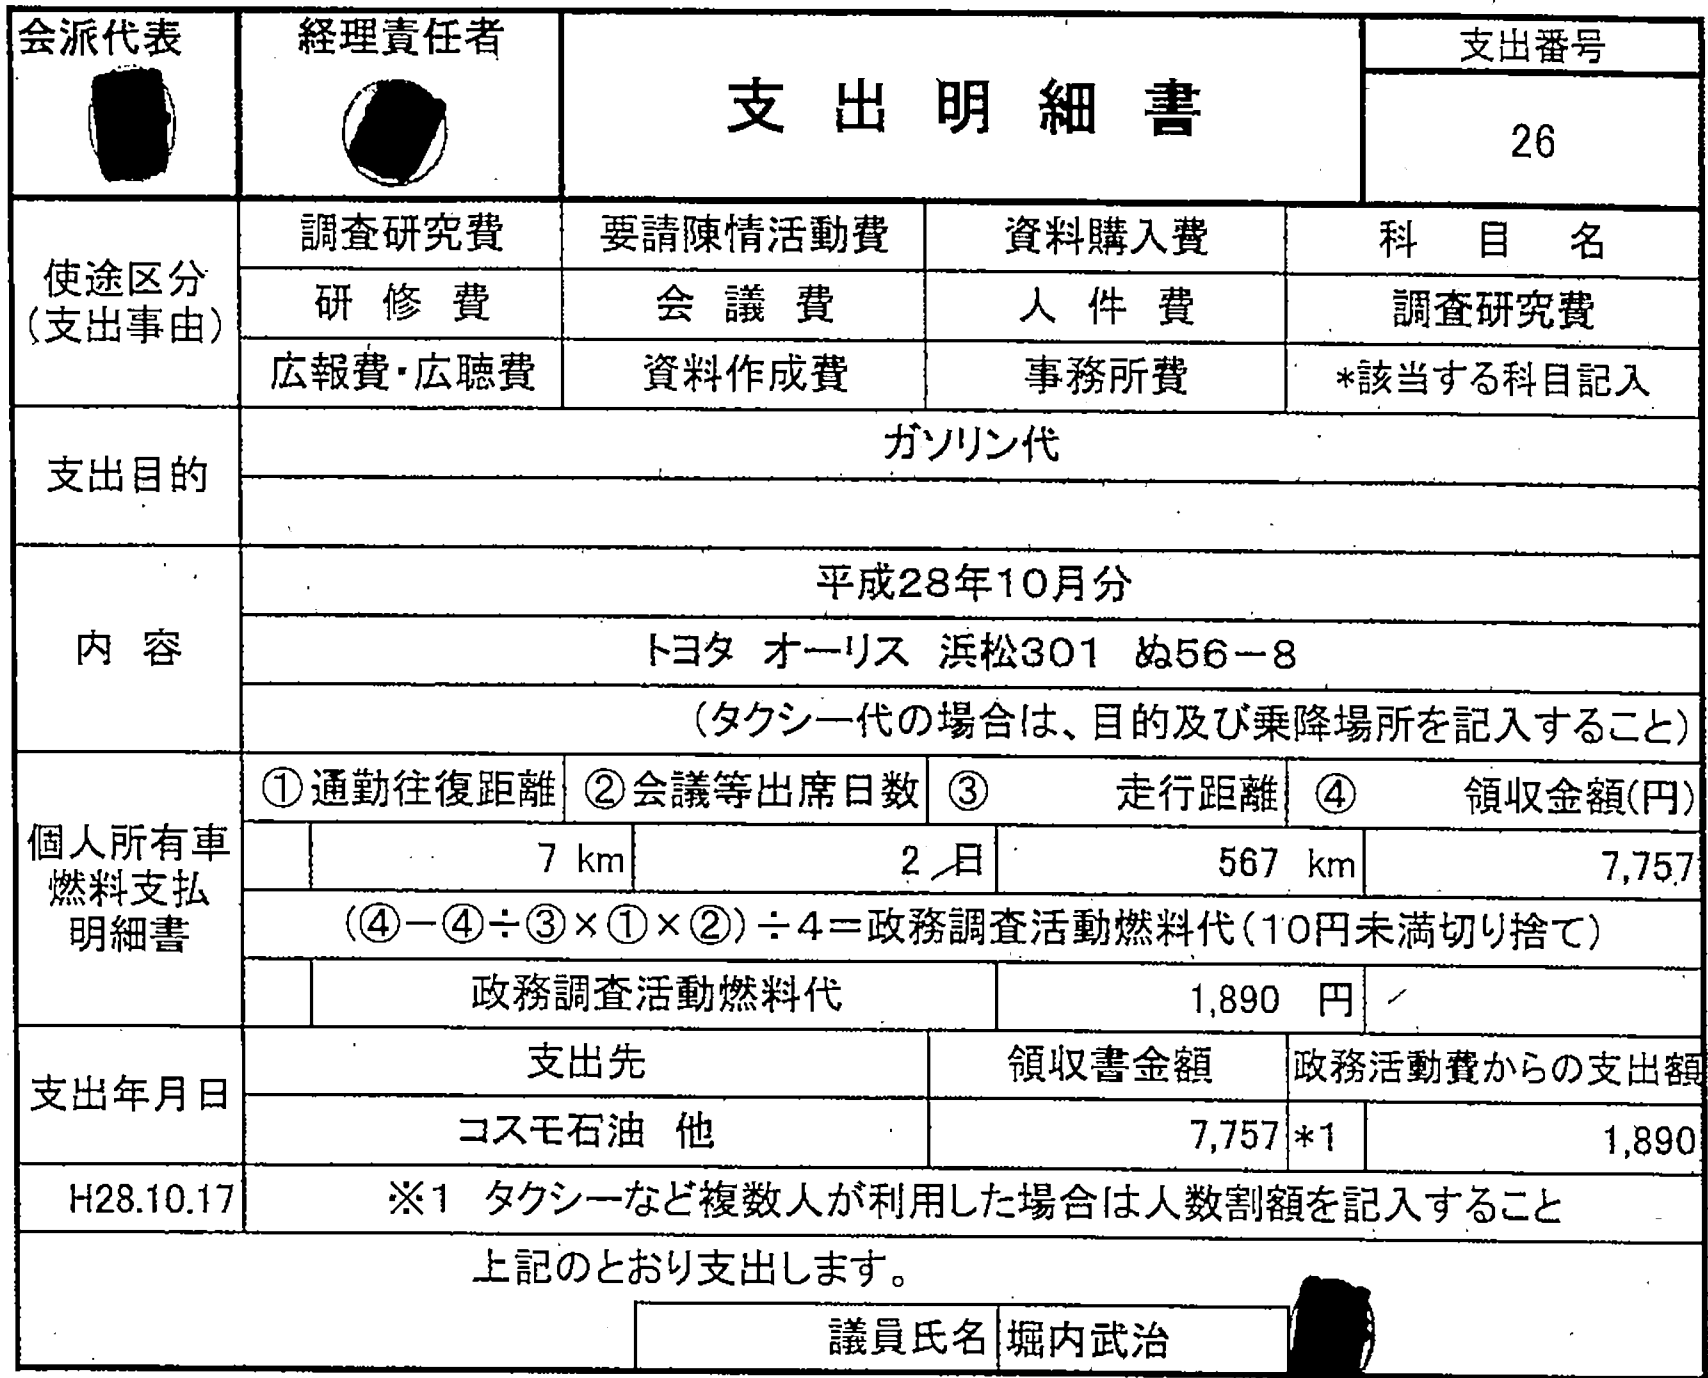 会派代表
経理責任者
支出明細書
支出番号
26
使途区分
(支出事由)
調査研究費
要請陳情活動費
資料購入費
科目名
研修費
会議費
人件費
調査研究費
広報費・広聴費
資料作成費
事務所費
*該当する科目記入
支出目的
ガソリン代
内容
平成28年10月分
トヨタ オーリス 浜松301 ぬ56-8
(タクシー代の場合は、目的及び乗降場所を記入すること)
個人所有車
燃料支払
明細書
①通勤往復距離
②会議等出席日数
③ 走行距離
④ 領収金額(円)
7 km
2 日
567 km
7,757
(④-④÷③×①×②)÷4=政務調査活動燃料代(10円未満切り捨て)
政務調査活動燃料代
1,890 円
支出年月日
支出先
領収書金額
政務活動費からの支出額
コスモ石油 他
7,757
*1
1,890
H28.10.17
※1 タクシーなど複数人が利用した場合は人数割額を記入すること
上記のとおり支出します。
議員氏名
堀内武治